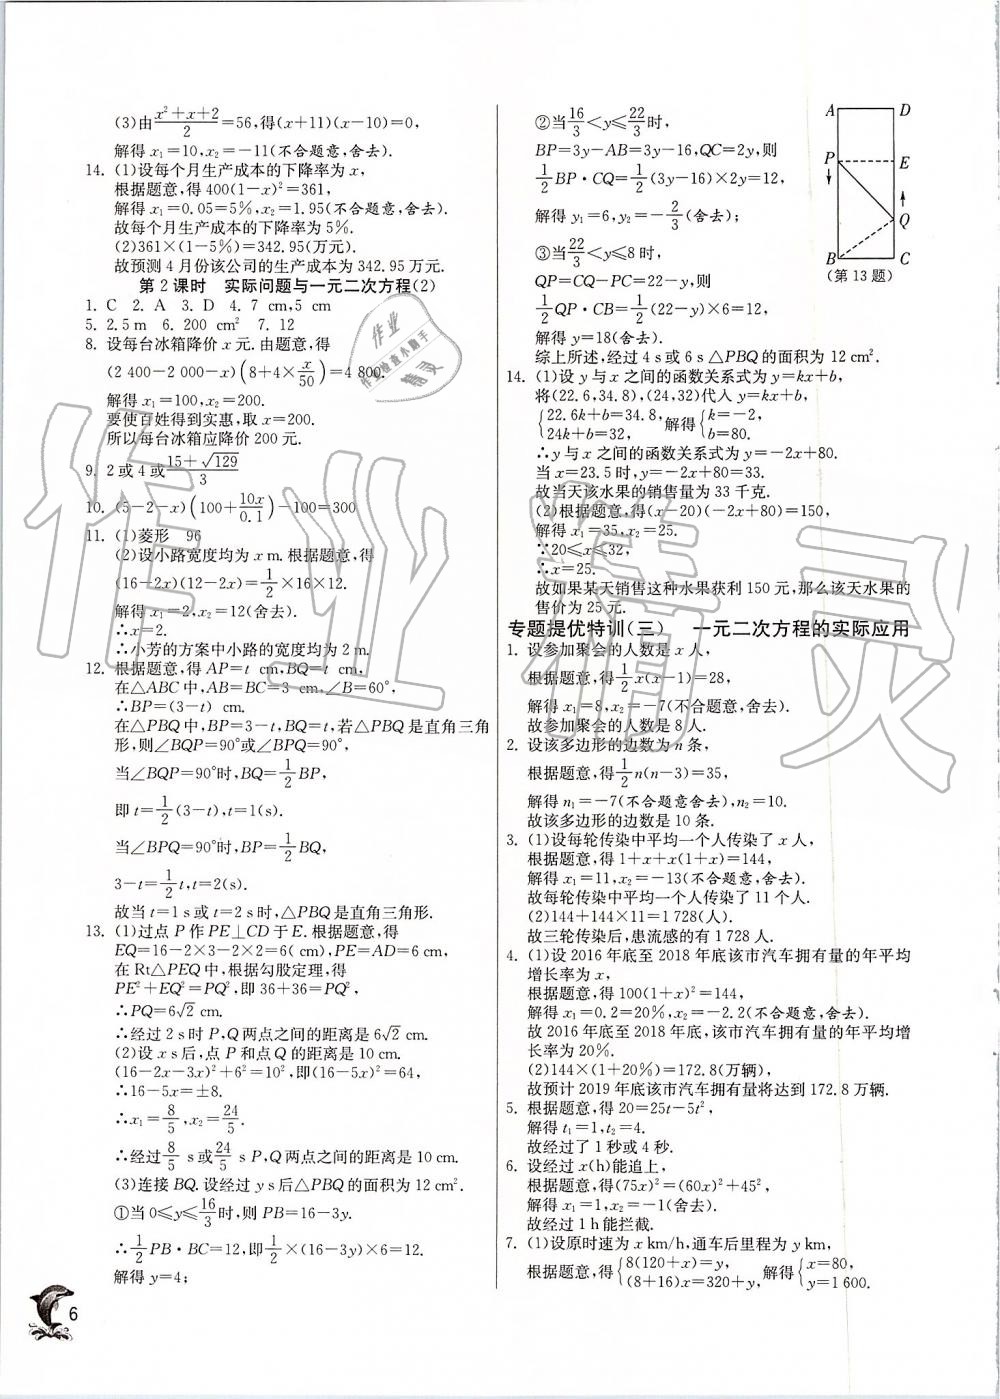 (3)由(x²+x+2)/2=56,得(x+11)(x-10)=0,
解得 x₁=10,x₂=-11(不合题意,舍去).
14. (1)设每个月生产成本的下降率为 x,
根据题意,得 400(1-x)²=361,
解得 x₁=0.05=5%,x₂=1.95(不合题意,舍去).
故每个月生产成本的下降率为 5%.
(2)361×(1-5%)=342.95(万元).
故预测 4 月份该公司的生产成本为 342.95 万元.
第 2 课时 实际问题与一元二次方程(2)
1. C 2. A 3. D 4. 7 cm,5 cm
5. 2.5 m 6. 200 cm² 7. 12
8. 设每台冰箱降价 x 元.由题意,得
(2 400-2 000-x)(8+4×x/50)=4 800.
解得 x₁=100,x₂=200.
要使百姓得到实惠,取 x=200.
所以每台冰箱应降价 200 元.
9. 2 或 4 或(15+√129)/3
10. (5-2-x)(100+10x/0.1)-100=300
11. (1)菱形 96
(2)设小路宽度均为 x m.根据题意,得
(16-2x)(12-2x)=1/2×16×12.
解得 x₁=2,x₂=12(舍去).
∴x=2.
∴小芳的方案中小路的宽度均为 2 m.
12. 根据题意,得 AP=t cm,BQ=t cm,
在△ABC 中,AB=BC=3 cm,∠B=60°,
∴BP=(3-t) cm.
在△PBQ 中,BP=3-t,BQ=t,若△PBQ 是直角三角
形,则∠BQP=90°或∠BPQ=90°,
当∠BQP=90°时,BQ=1/2BP,
即 t=1/2(3-t),t=1(s).
当∠BPQ=90°时,BP=1/2BQ,
3-t=1/2t,t=2(s).
故当 t=1 s 或 t=2 s 时,△PBQ 是直角三角形.
13. (1)过点 P 作 PE⊥CD 于 E.根据题意,得
EQ=16-2×3-2×2=6(cm),PE=AD=6 cm,
在 Rt△PEQ 中,根据勾股定理,得
PE²+EQ²=PQ²,即 36+36=PQ²,
∴PQ=6√2 cm.
∴经过 2 s 时 P,Q 两点之间的距离是 6√2 cm.
(2)设 x s 后,点 P 和点 Q 的距离是 10 cm.
(16-2x-3x)²+6²=10²,即(16-5x)²=64,
∴16-5x=±8.
∴x₁=8/5,x₂=24/5.
∴经过8/5 s 或24/5 s P,Q 两点之间的距离是 10 cm.
(3)连接 BQ.设经过 y s 后△PBQ 的面积为 12 cm².
①当 0≤y≤16/3时,则 PB=16-3y.
∴1/2PB·BC=12,即1/2×(16-3y)×6=12.
解得 y=4;
②当16/3<y≤22/3时,
BP=3y-AB=3y-16,QC=2y,则
1/2BP·CQ=1/2(3y-16)×2y=12,
解得 y₁=6,y₂=-2/3(舍去);
③当22/3<y≤8 时,
QP=CQ-PC=22-y,则
1/2QP·CB=1/2(22-y)×6=12,
解得 y=18(舍去).
综上所述,经过 4 s 或 6 s △PBQ 的面积为 12 cm².
A D
P E
Q
B C
(第 13 题)
14. (1)设 y 与 x 之间的函数关系式为 y=kx+b,
将(22.6,34.8),(24,32)代入 y=kx+b,
{22.6k+b=34.8, 24k+b=32, 解得{k=-2, b=80.
∴y 与 x 之间的函数关系式为 y=-2x+80.
当 x=23.5 时,y=-2x+80=33.
故当天该水果的销售量为 33 千克.
(2)根据题意,得(x-20)(-2x+80)=150,
解得 x₁=35,x₂=25.
∵20≤x≤32,
∴x=25.
故如果某天销售这种水果获利 150 元,那么该天水果的
售价为 25 元.
专题提优特训(三) 一元二次方程的实际应用
1. 设参加聚会的人数是 x 人,
根据题意,得1/2x(x-1)=28,
解得 x₁=8,x₂=-7(不合题意,舍去).
故参加聚会的人数是 8 人.
2. 设该多边形的边数为 n 条,
根据题意,得1/2n(n-3)=35,
解得 n₁=-7(不合题意舍去),n₂=10.
故该多边形的边数是 10 条.
3. (1)设每轮传染中平均一个人传染了 x 人,
根据题意,得 1+x+x(1+x)=144,
解得 x₁=11,x₂=-13(不合题意,舍去).
故每轮传染中平均一个人传染了 11 个人.
(2)144+144×11=1 728(人).
故三轮传染后,患流感的有 1 728 人.
4. (1)设 2016 年底至 2018 年底该市汽车拥有量的年平均
增长率为 x,
根据题意,得 100(1+x)²=144,
解得 x₁=0.2=20%,x₂=-2.2(不合题意,舍去).
故 2016 年底至 2018 年底,该市汽车拥有量的年平均增
长率为 20%.
(2)144×(1+20%)=172.8(万辆),
故预计 2019 年底该市汽车拥有量将达到 172.8 万辆.
5. 根据题意,得 20=25t-5t²,
解得 t₁=1,t₂=4.
故经过了 1 秒或 4 秒.
6. 设经过 x(h)能追上,
根据题意,得(75x)²=(60x)²+45²,
解得 x₁=1,x₂=-1(舍去).
故经过 1 h 能拦截.
7. (1)设原时速为 x km/h,通车后里程为 y km,
根据题意,得{8(120+x)=y, (8+16)x=320+y, 解得{x=80, y=1 600.
6
作业精灵
作业
作业检查小助手
精灵